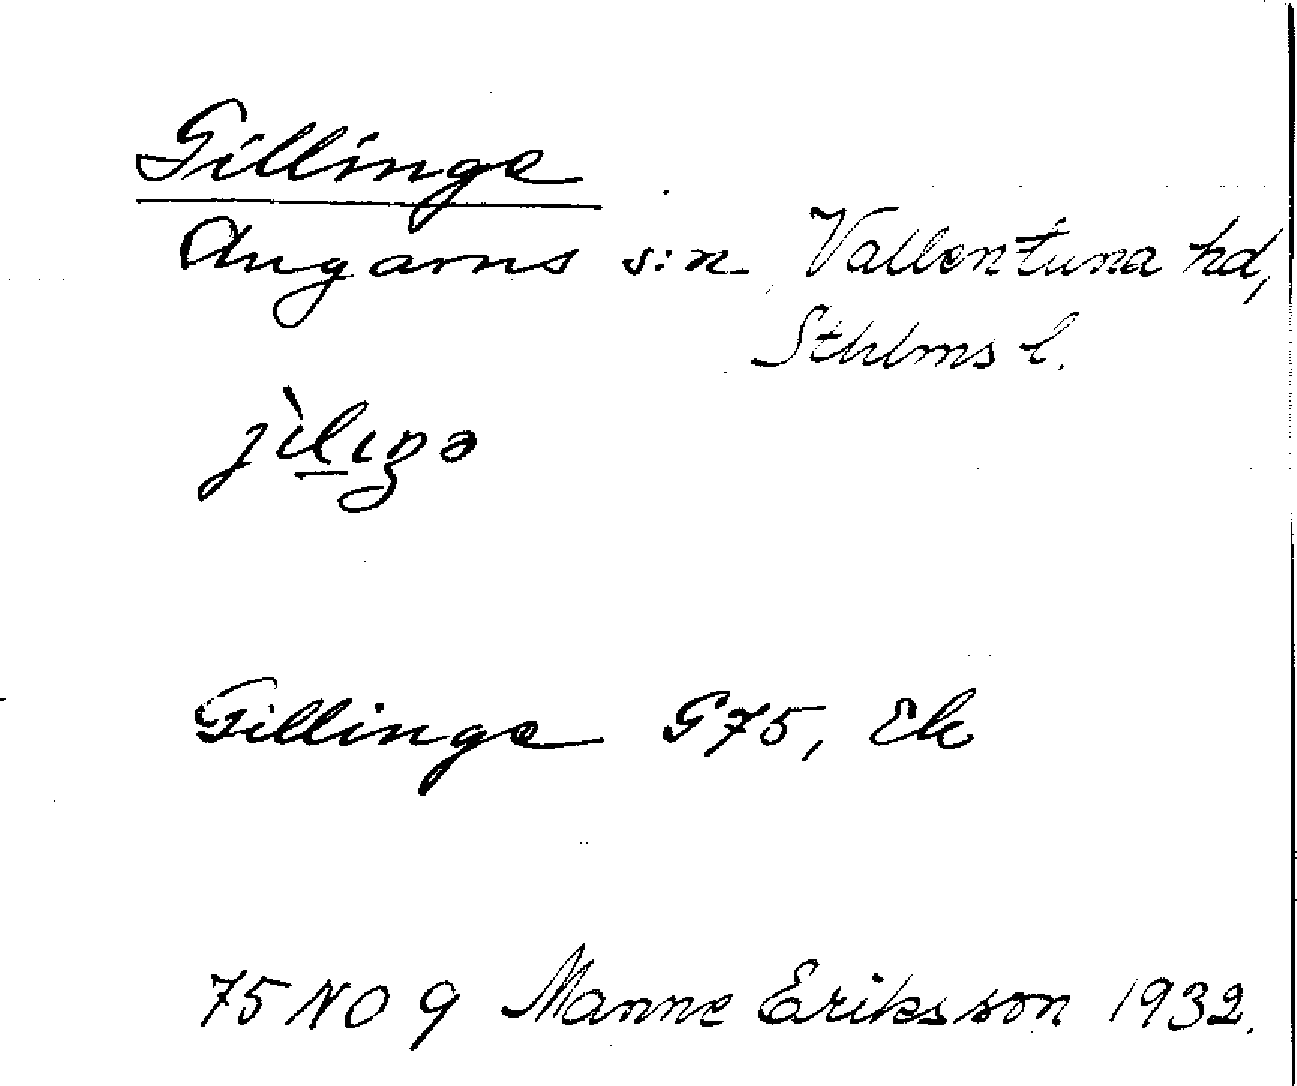 Gillinge
Angarns s:n, Vallentuna hd,
Sthlms l.
jìlıŋə
Gillinge G75, Ek
75 NO 9 Manne Eriksson 1932.